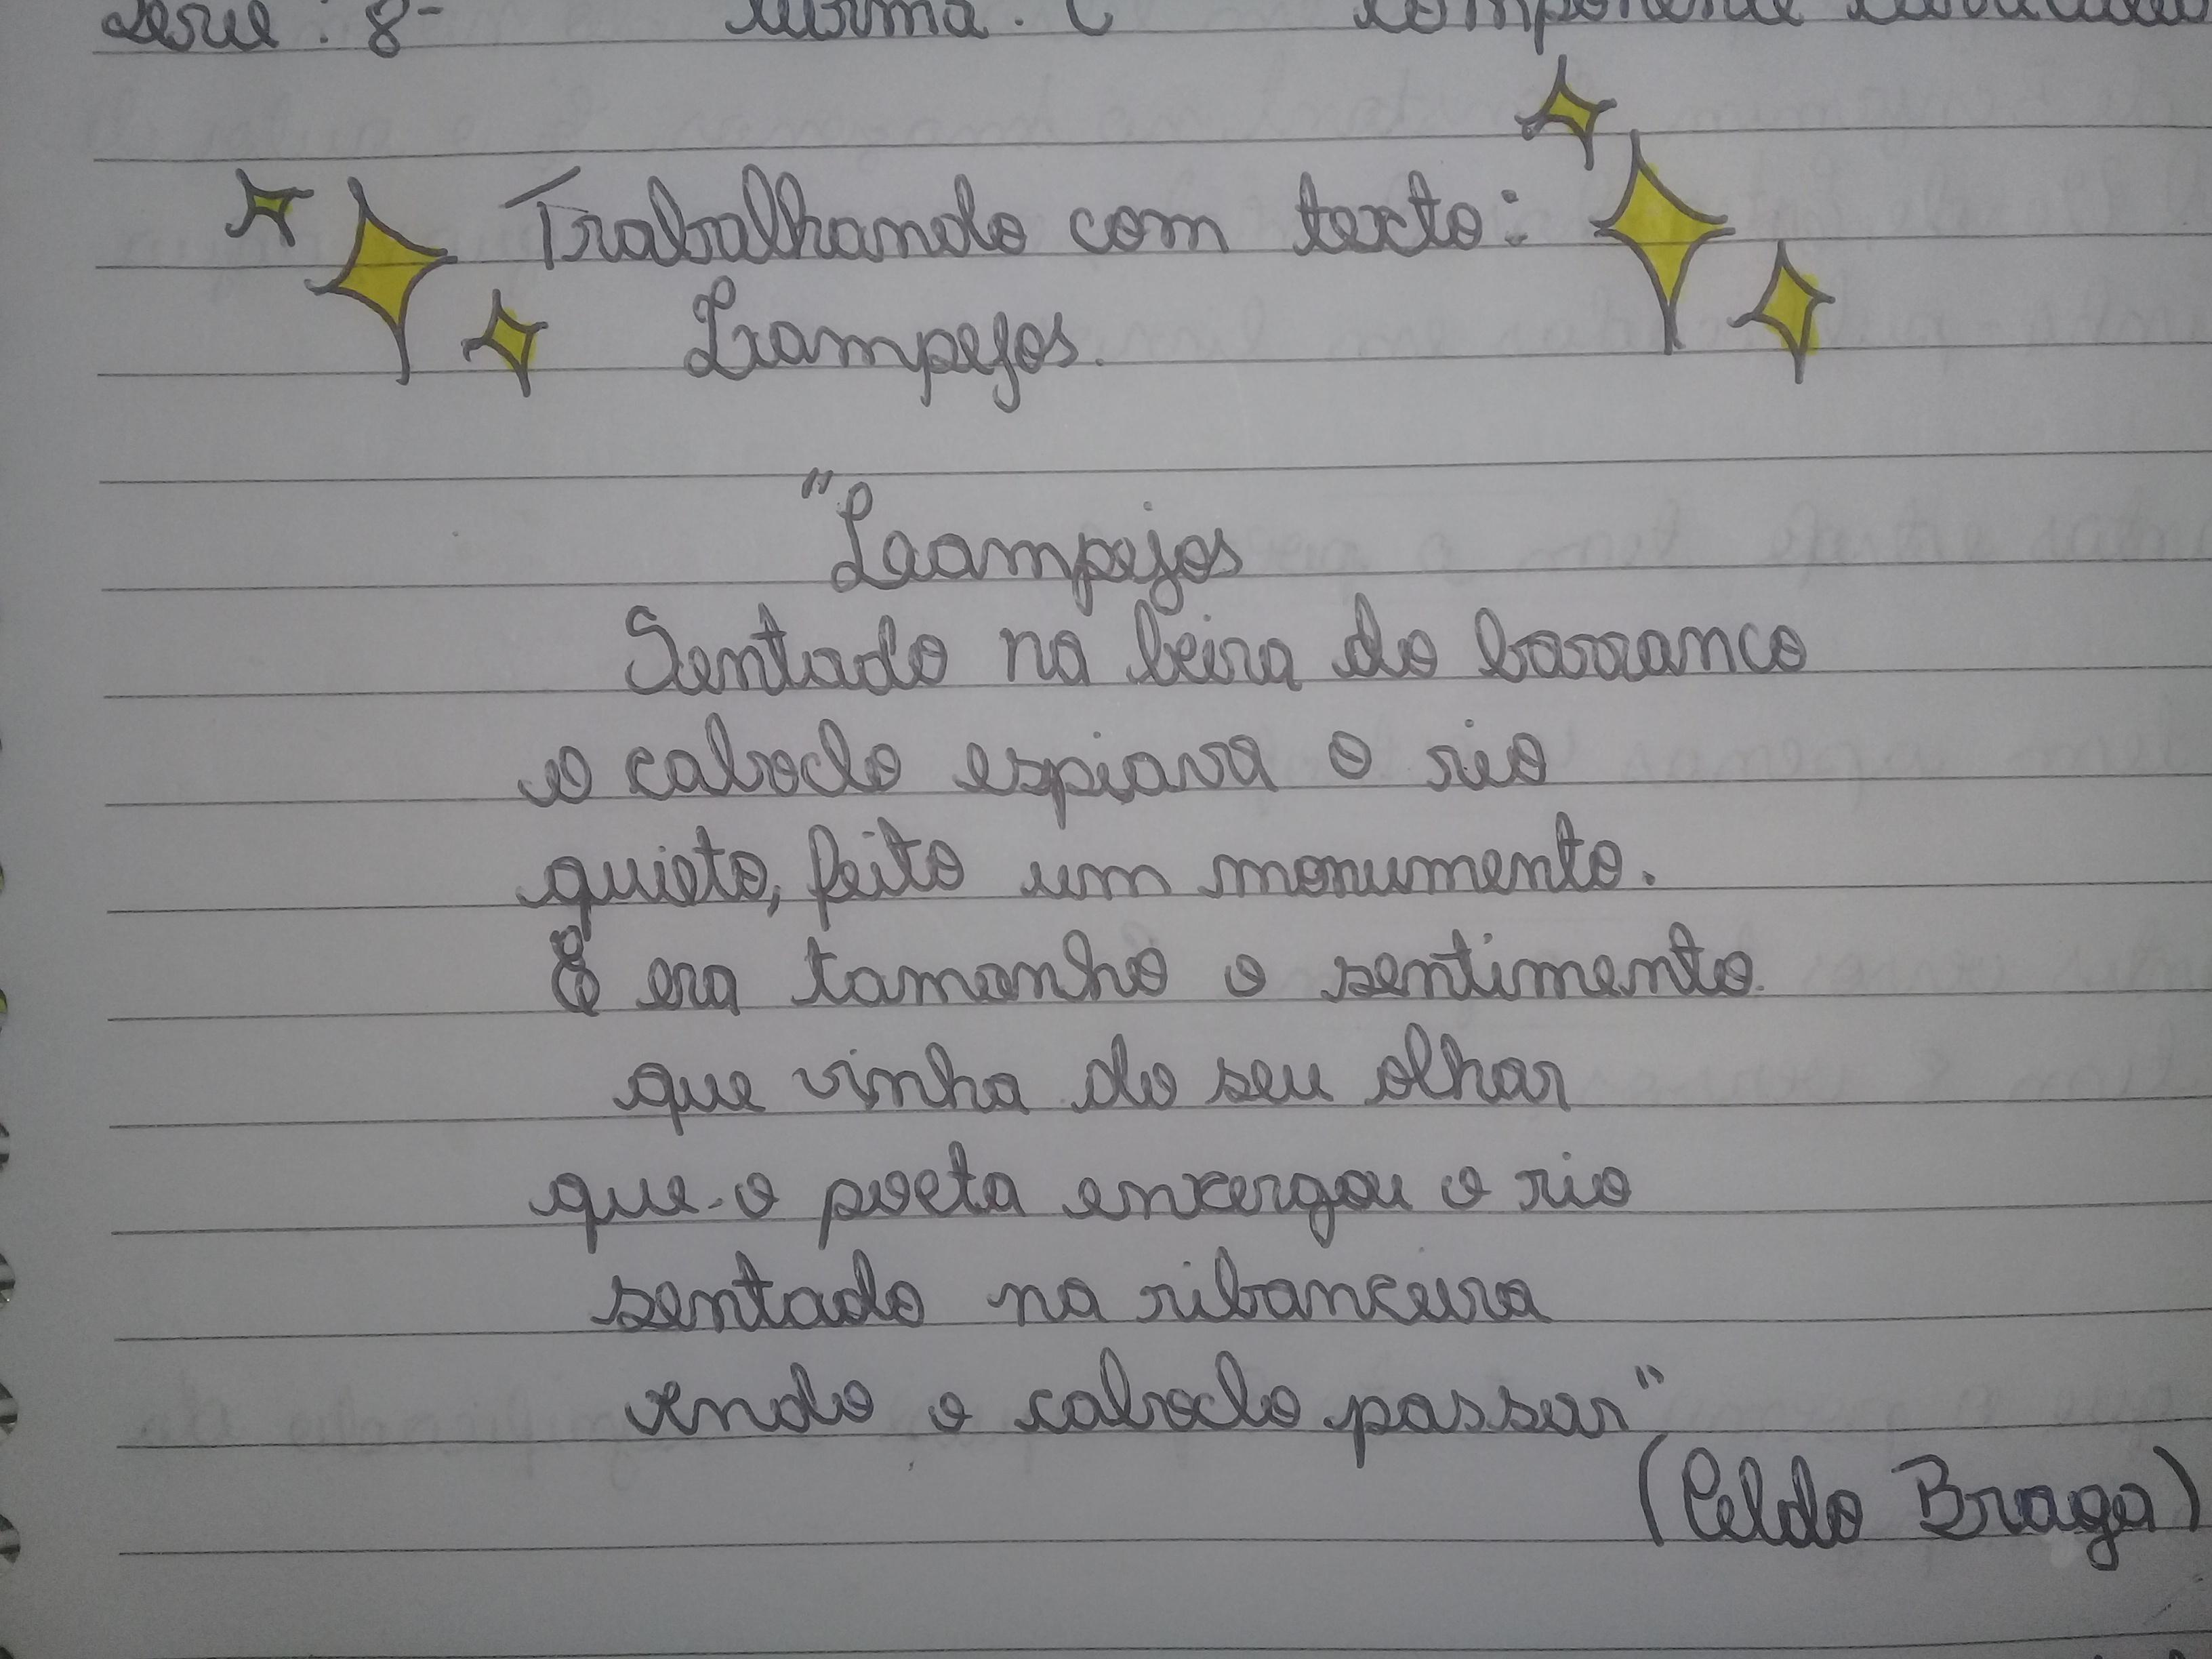 Série: 8ª Turma: C Componente
Trabalhando com texto:
Lampejos.
"Lampejos
Sentado na beira do barranco
o caboclo espiava o rio
quieto, feito um monumento.
E era tamanho o sentimento.
que vinha do seu olhar
que o poeta enxergou o rio
sentado na ribanceira
vendo o caboclo passar"
(Celdo Braga)